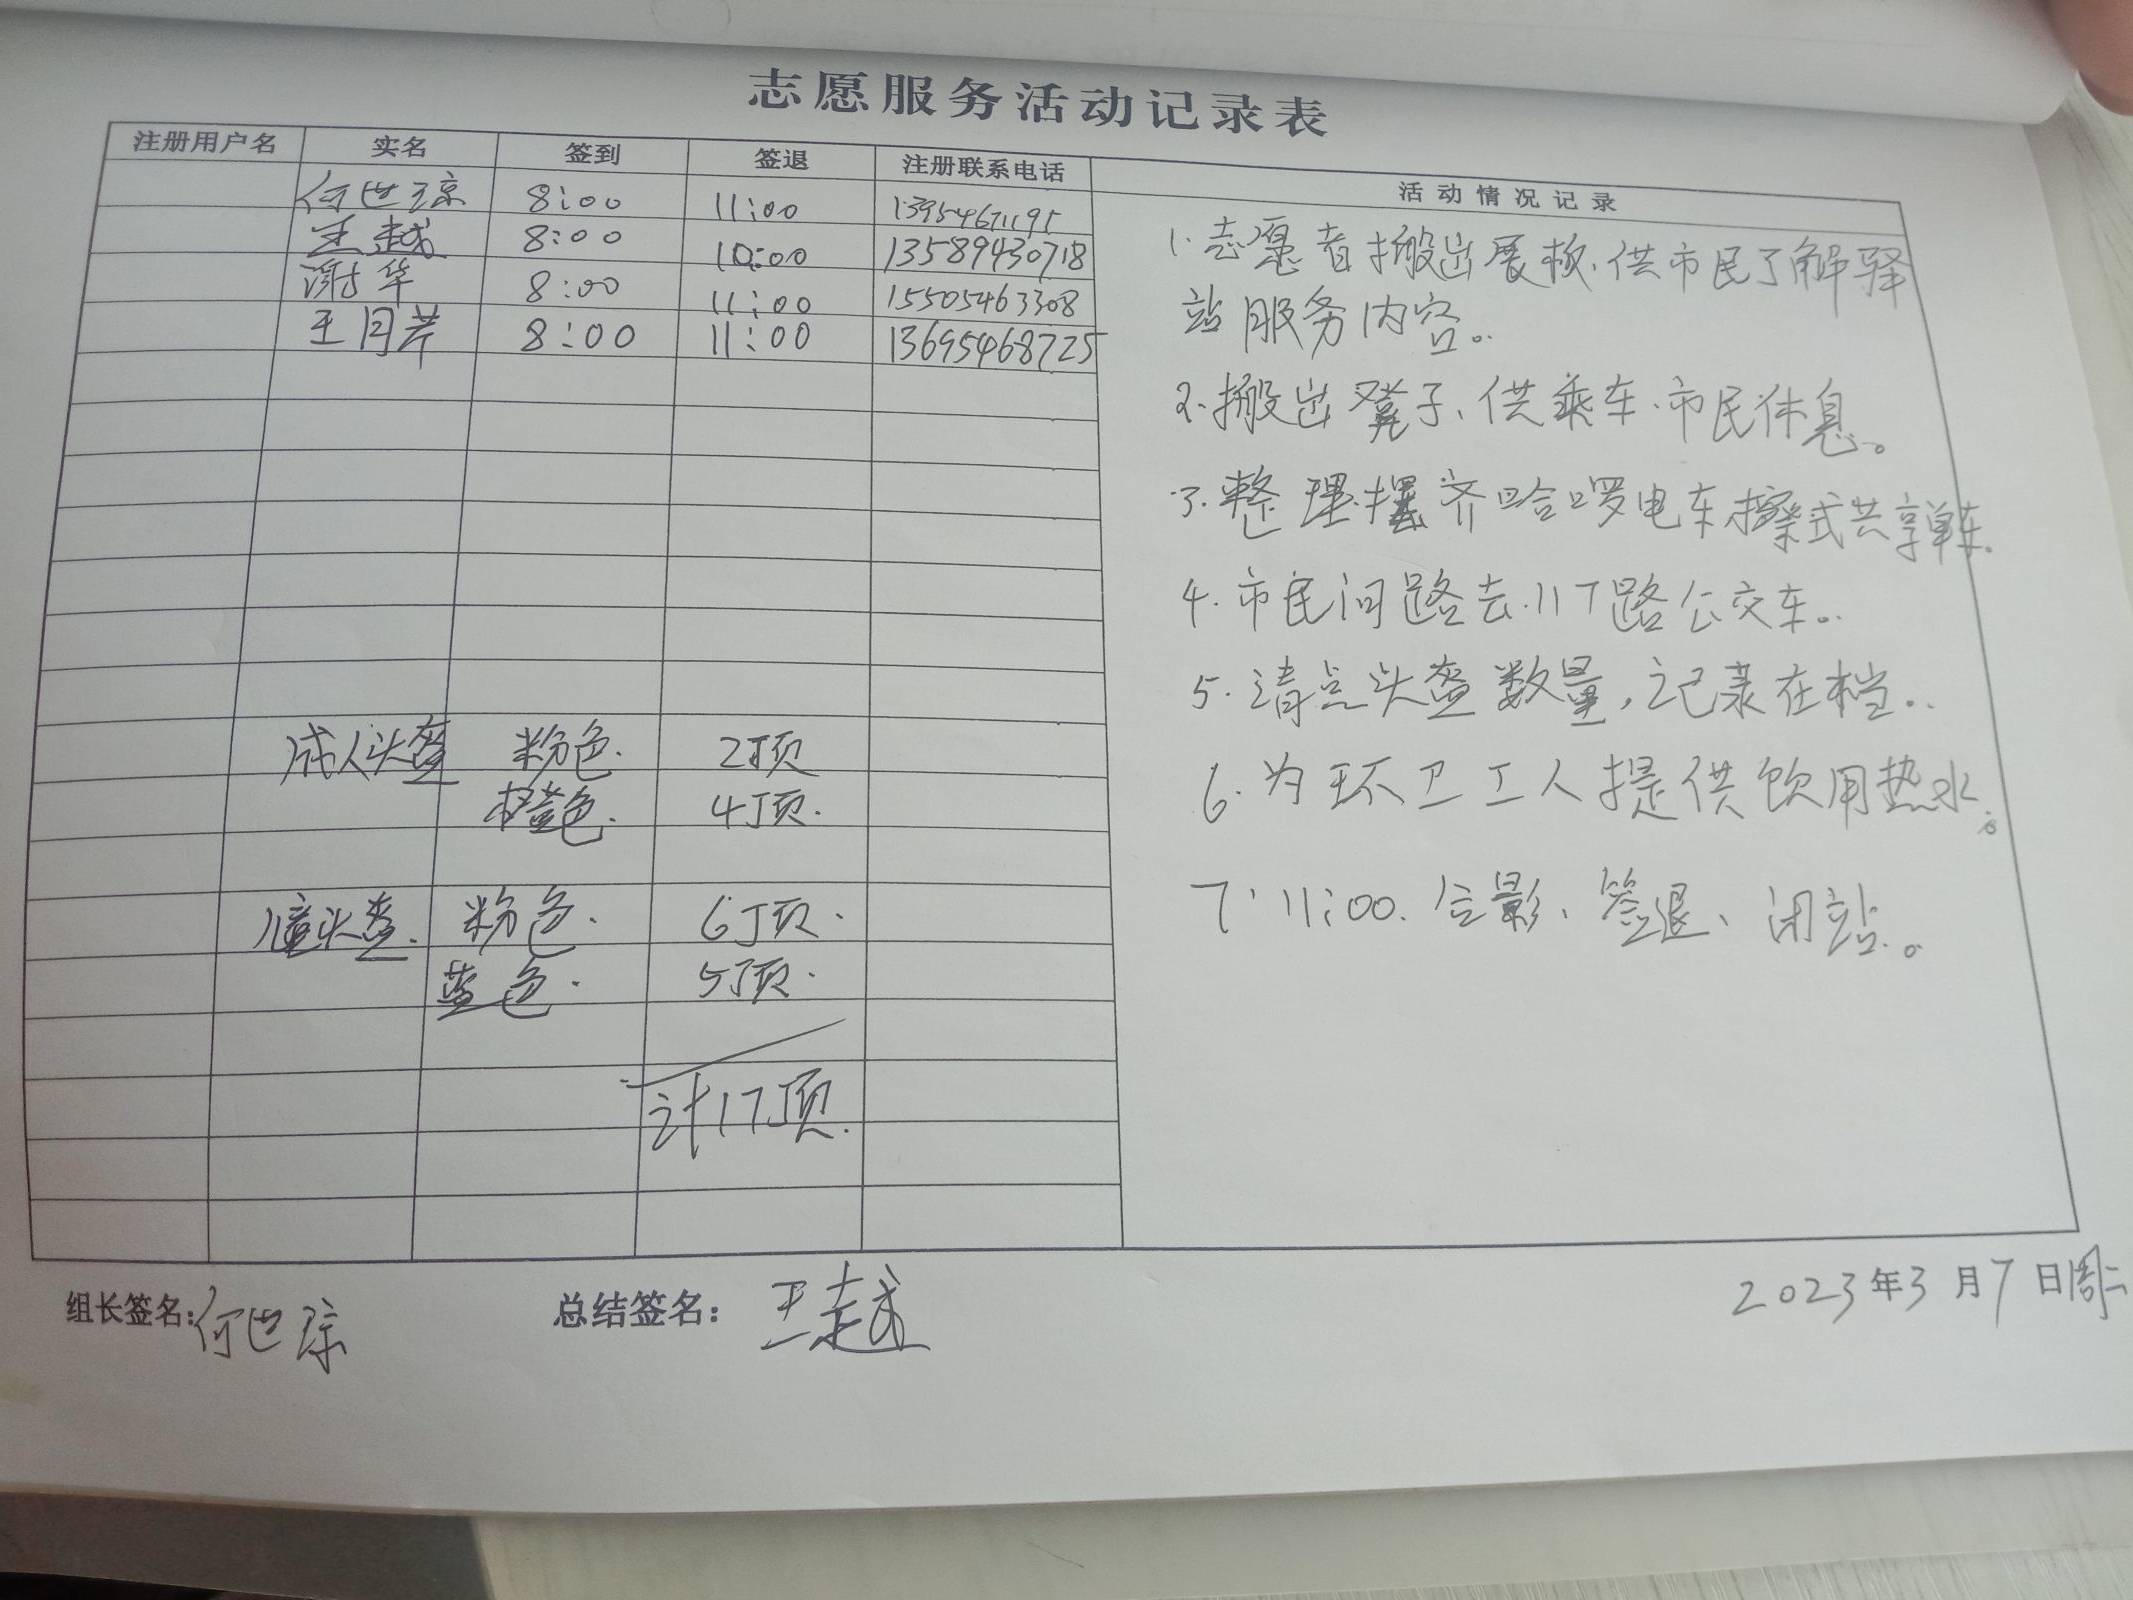 志愿服务活动记录表
注册用户名 实名 签到 签退 注册联系电话 活动情况记录
何世琼 8:00 11:00 13954671195
王越 8:00 10:00 13589430718
谢华 8:00 11:00 15505463308
王月芹 8:00 11:00 13695468725
成人头盔 粉色. 2顶
橙色. 4顶.
儿童头盔. 粉色. 6顶.
蓝色. 5顶.
计17顶.
1.志愿者搬出展板、供市民了解驿
站服务内容。
2.搬出凳子、供乘车市民休息。
3.整理摆齐哈啰电车,擦式共享单车.
4.市民问路去117路公交车。
5.清点头盔数量,记录在档。
6.为环卫工人提供饮用热水。
7.11:00.合影、签退、闭站。
组长签名:何世琼 总结签名:王越 2023年3月7日周二